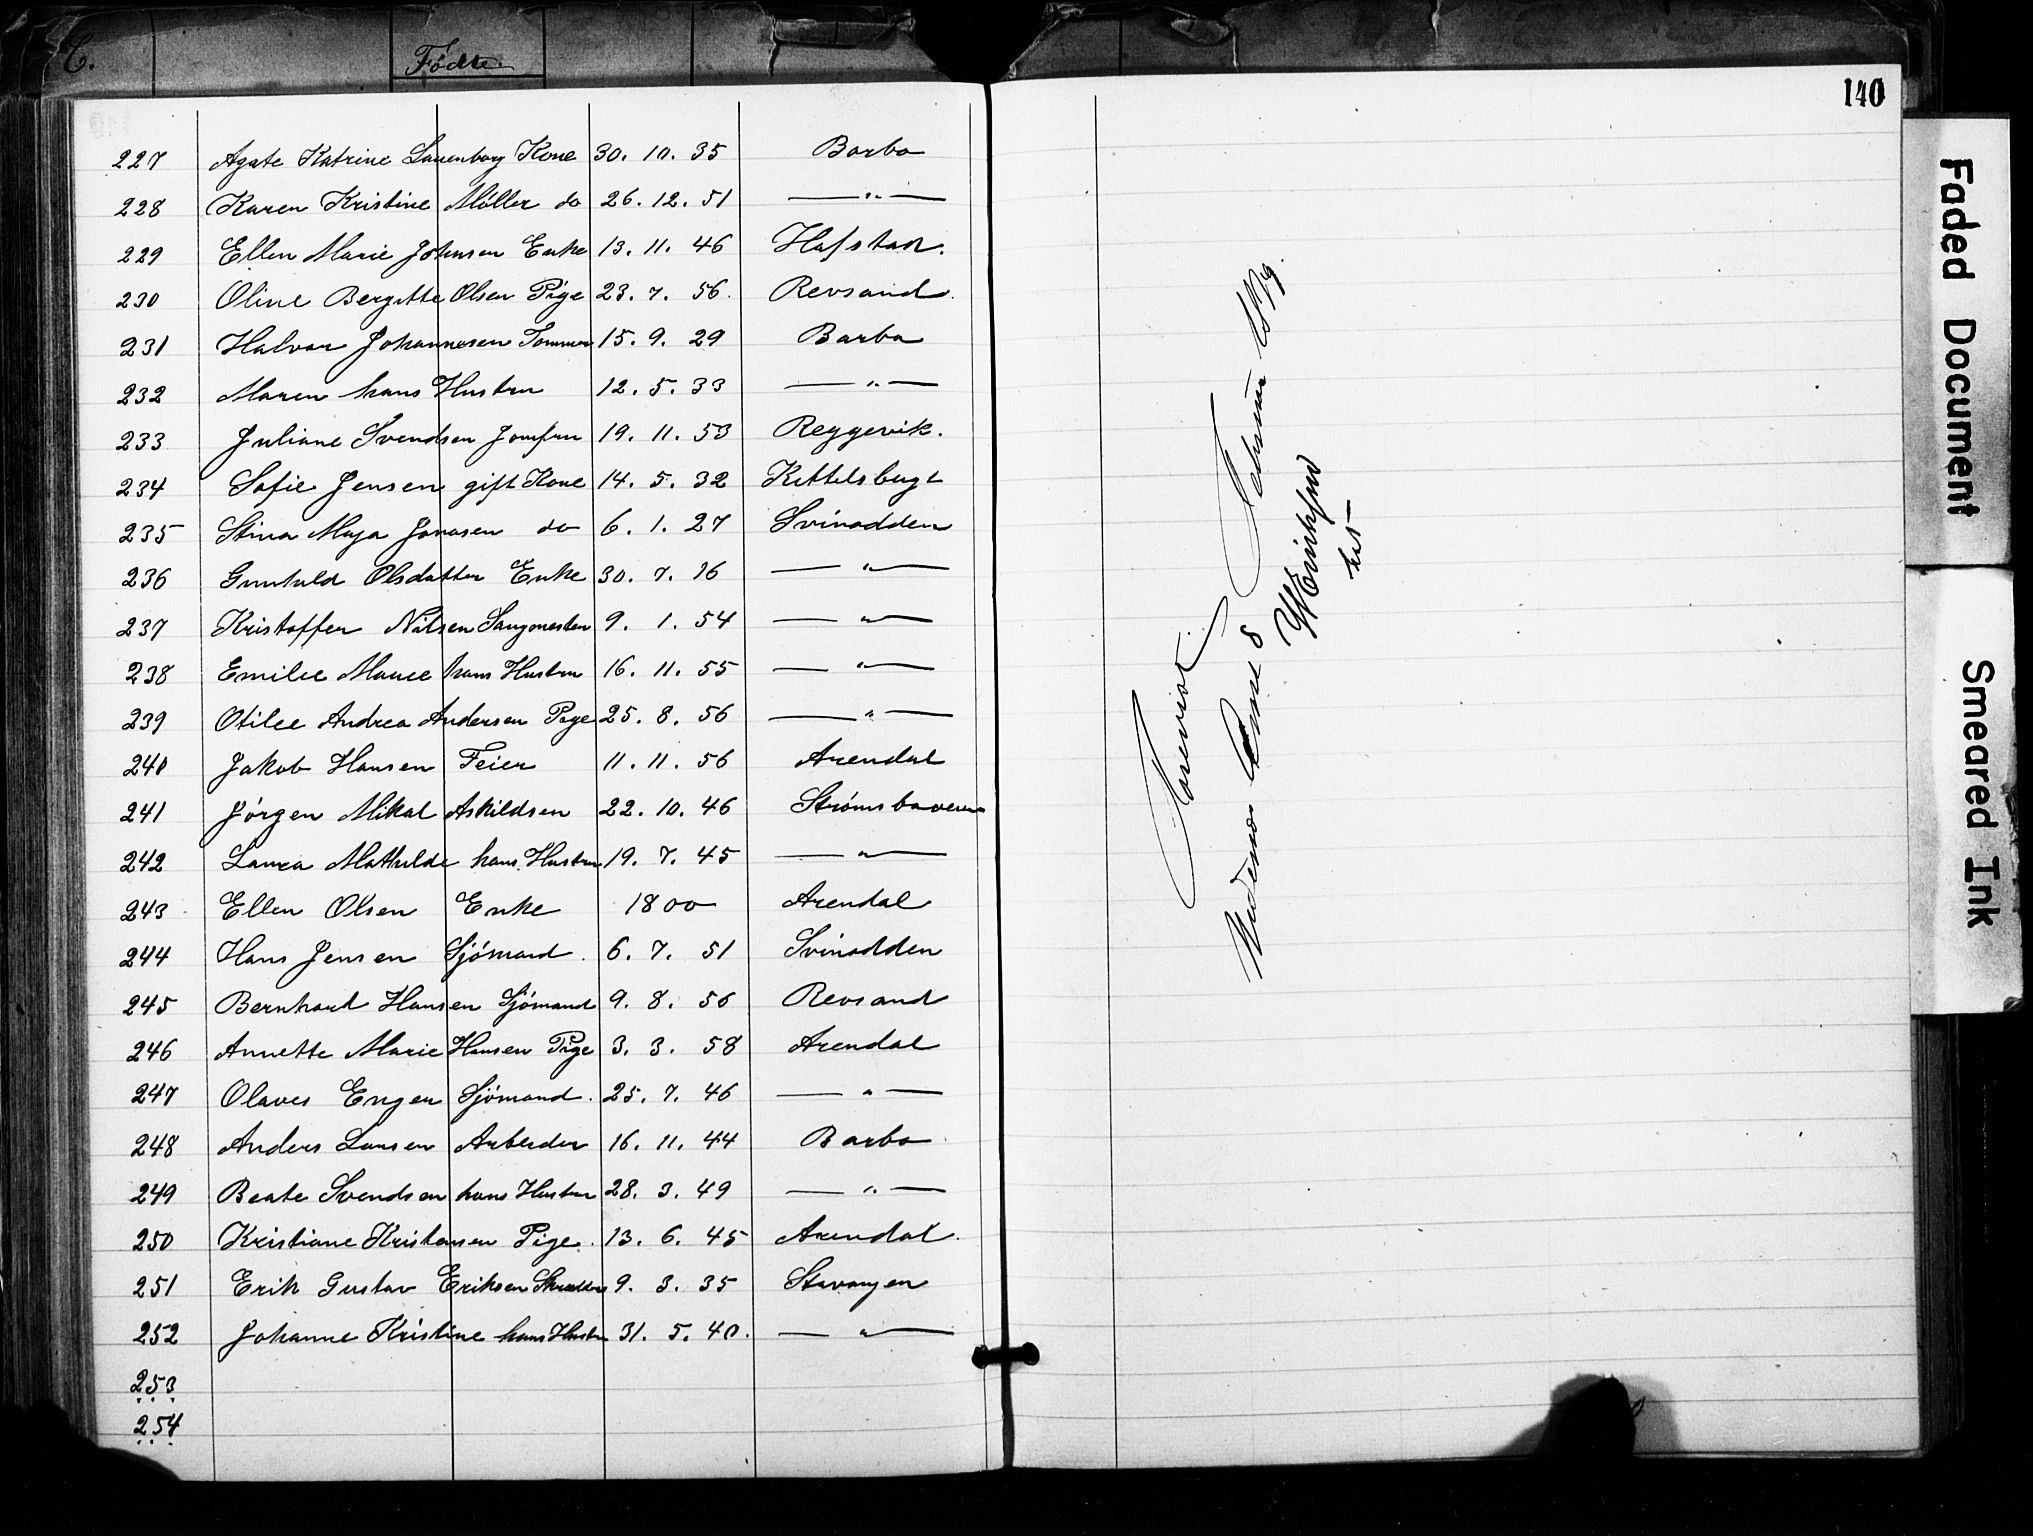 C.
Fødte.
140
227 Agate Katrine Lauenborg Kone 30. 10. 35 Barbo
228 Karen Kristine Møller do 26. 12. 51 — " —
229 Ellen Marie Johnsen Enke 13. 11. 46 Hafstad.
230 Oline Bergitte Olsen Pige 23. 7. 56. Revsand.
231 Halvor Johannesen Tømmer 15. 9. 29 Barbo
232 Maren hans Hustru 12. 5. 33 — " —
233 Juliane Svendsen Jomfru 19. 11. 53 Reggevik.
234 Sofie Jensen gift Kone 14. 5. 32 Kittelsbugt
235 Stina Maja Jonasen do 6. 1. 27 Svinodden
236 Gunhild Olsdatter Enke 30. 7. 16 — " —
237 Kristoffer Nilsen 9. 1. 54 — " —
238 Emilie Marie hans Hustru 16. 11. 55 — " —
239 Otilee Andrea Andersen Pige 25. 8. 56 — " —
240 Jakob Hansen Feier 11. 11. 56 Arendal
241 Jørgen Mikal Askildsen 22. 10. 46 Strømsboveien
242 Laura Mathilde hans Hustru 19. 7. 45 — " —
243 Ellen Olsen Enke 1800 Arendal
244 Hans Jensen Sjømand. 6. 7. 51 Svinodden
245 Bernhard Hansen Sjømand 9. 8. 56 Revsand
246 Annette Marie Hansen Pige 3. 3. 58 Arendal
247 Olaves Enger Sjømand. 25. 7. 46 — " —
248 Anders Larsen Arbeider 16. 11. 44 Barbo
249 Beate Svendsen hans Hustru 28. 3. 49 — " —
250 Kristiane Kristensen Pige. 13. 6. 45 Arendal.
251 Erik Gustav Eriksen Skrædder 9. 3. 35 Stavanger
252 Johanne Kristine hans Hustru 31. 5. 40. — " —
253
254
Faded Document
Smeared Ink